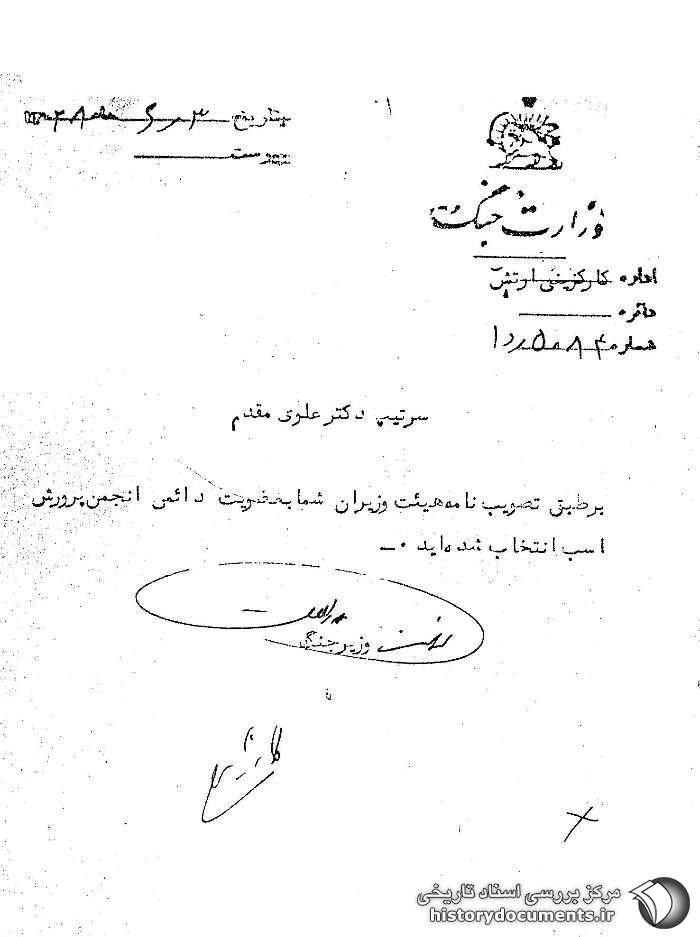 بتاریخ ۳ ر ۶ ماه ۲۸ ۱۳
پیوست
وزارت جنگ
اداره کارگزینی ارتش
دائره
شماره ۵۰۸۴ ر د ۱
سرتیپ دکتر علوی مقدم
برطبق تصویب نامه هیئت وزیران شما بعضویت دائمی انجمن پرورش
اسب انتخاب شده اید ۰ـ
وزیر جنگ
مرکز بررسی اسناد تاریخی
historydocuments.ir